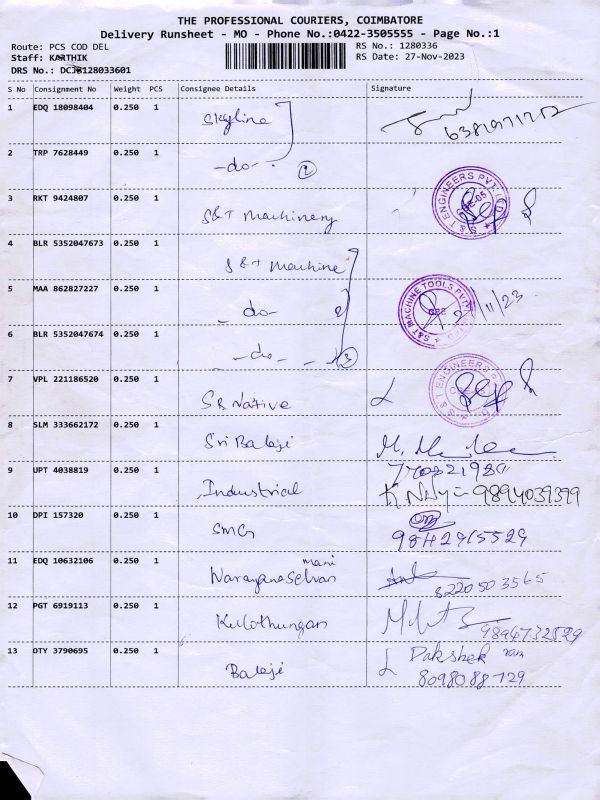 THE PROFESSIONAL COURIERS, COIMBATORE
Delivery Runsheet - MO - Phone No.:0422-3505555 - Page No.:1
Route: PCS COD DEL
RS No.: 1280336
Staff: KARTHIK
RS Date: 27-Nov-2023
DRS No.: DCJB128033601
S No Consignment No Weight PCS Consignee Details Signature
1 EDQ 18098404 0.250 1 Skyline
2 TRP 7628449 0.250 1 -do- 2
3 RKT 9424807 0.250 1 S&T Machinery
S & T ENGINEERS PVT. LTD
4 BLR 5352047673 0.250 1 S&T Machine
5 MAA 862827227 0.250 1 -do-
S&T MACHINE TOOLS PVT
/11/23
6 BLR 5352047674 0.250 1 -do- 3
7 VPL 221186520 0.250 1 SB Native
S & T ENGINEERS P
8 SLM 333662172 0.250 1 Sri Balaji
9 UPT 4038819 0.250 1 Industrial
10 DPI 157320 0.250 1 SMG
11 EDQ 10632106 0.250 1 Narayanaselvan mani 8220503565
12 PGT 6919113 0.250 1 Kulothungan
13 OTY 3790695 0.250 1 Balaji